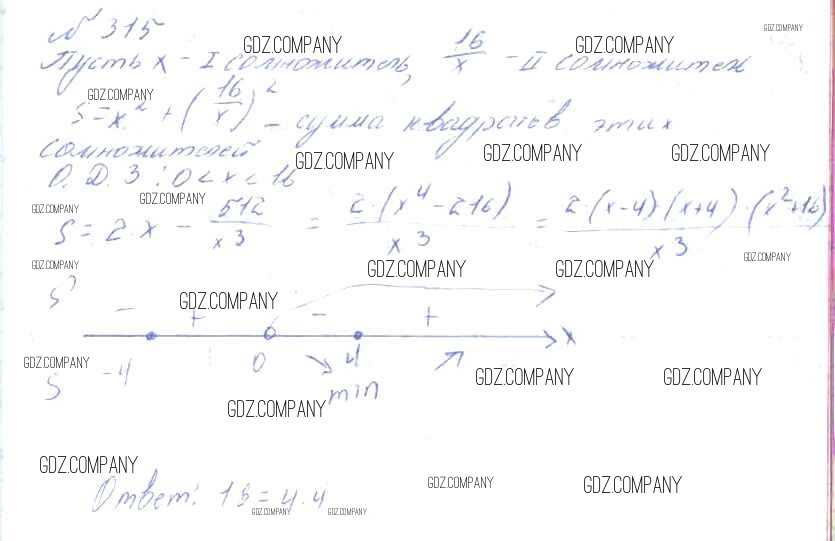 № 315
GDZ.COMPANY GDZ.COMPANY GDZ.COMPANY
Пусть x - I сомножитель, 16/x - II сомножител
GDZ.COMPANY
S = x² + (16/x)² - сумма квадратов этих
сомножителей
GDZ.COMPANY GDZ.COMPANY GDZ.COMPANY
О.Д.З: 0 < x < 16
GDZ.COMPANY GDZ.COMPANY
S = 2·x - 512/x3 = 2·(x⁴ - 216)/x3 = 2·(x-4)(x+4)·(x²+16)/x3
GDZ.COMPANY GDZ.COMPANY GDZ.COMPANY GDZ.COMPANY
S' - + - +
GDZ.COMPANY
x
GDZ.COMPANY
S -4 0 4
min
GDZ.COMPANY GDZ.COMPANY
GDZ.COMPANY
GDZ.COMPANY
GDZ.COMPANY GDZ.COMPANY
Ответ: 18 = 4.4
GDZ.COMPANY GDZ.COMPANY